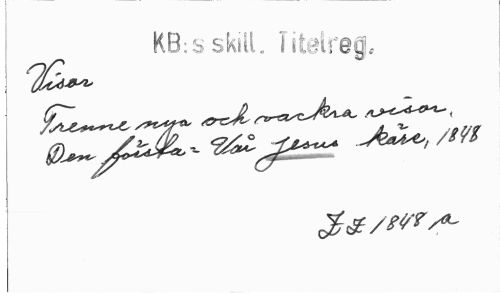 KB:s skill. Titelreg.
Visor
Trenne nya och vackra visor.
Den första = Vår Jesus käre, 1848
1848 a